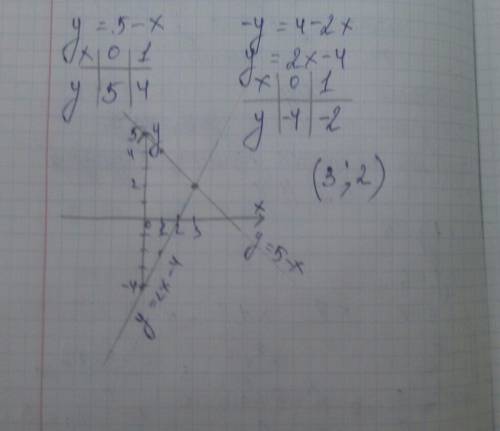 y = 5-x
x 0 1
y 5 4
-y = 4-2x
y = 2x-4
x 0 1
y -4 -2
(3;2)
5 y
4
2
x
0 1 2 3
-4
y=5-x
y=2x-4